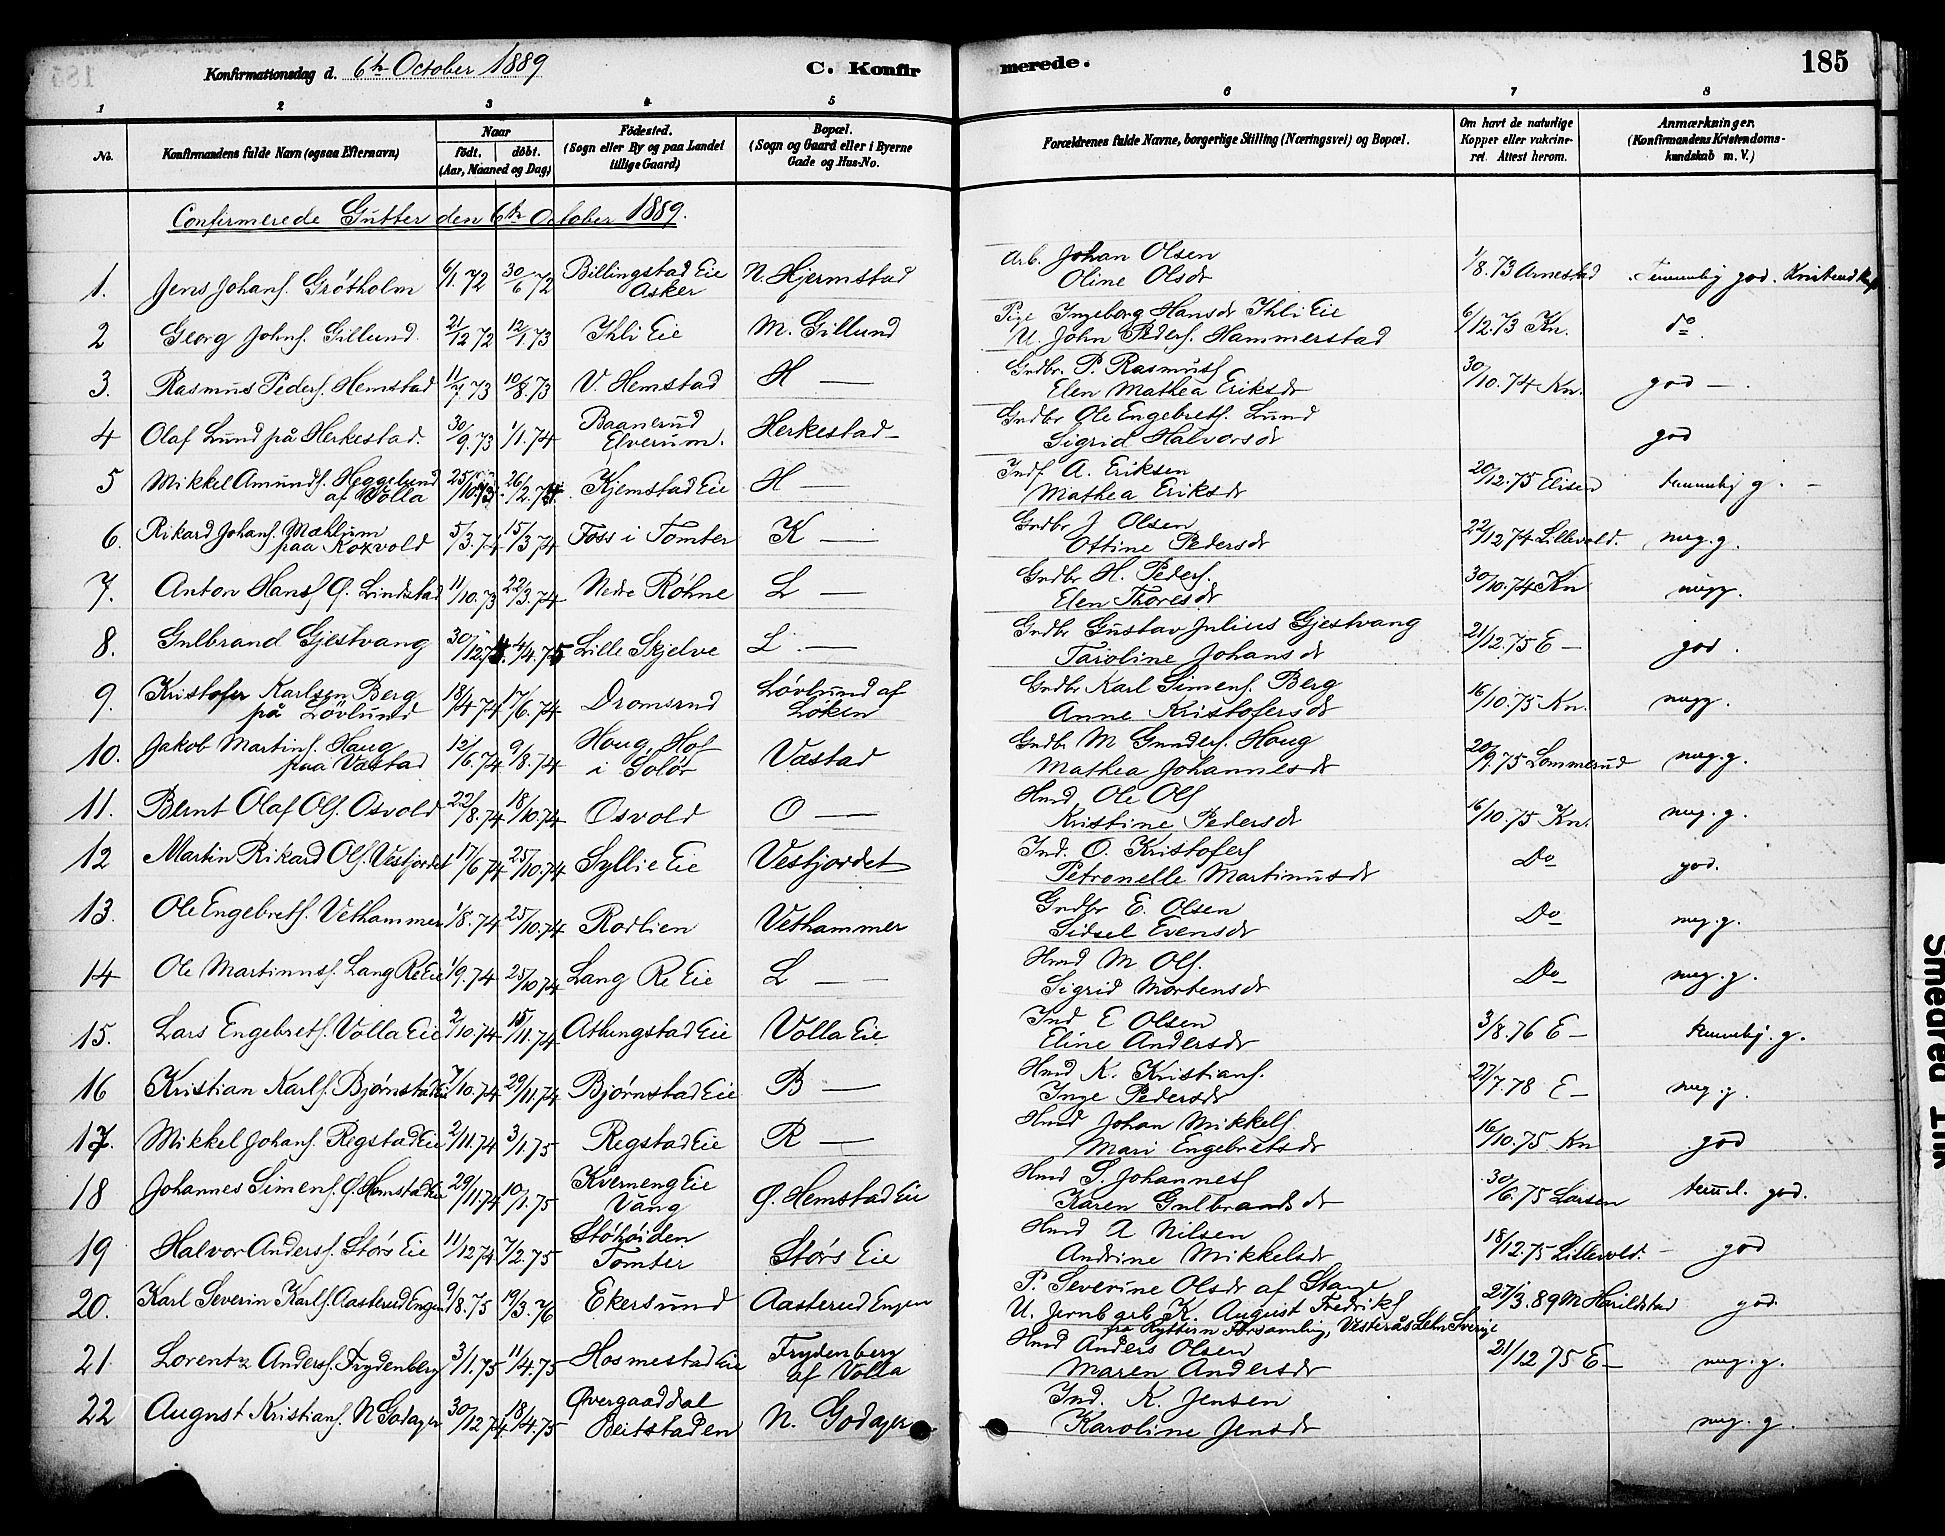 Konfirmationsdag d. 6te October 1889
C. Konfirmerede.
185
1 2 3 4 5 6 7 8
No. Konfirmandens fulde Navn (ogsaa Efternavn) Naar født. døbt. (Aar, Maaned og Dag) Fødested. (Sogn eller By og paa Landet tillige Gaard) Bopæl. (Sogn og Gaard eller i Byerne Gade og Hus-No. Forældrenes fulde Navne, borgerlige Stilling (Næringsvei) og Bopæl. Om havt de naturlige Kopper eller vakcineret. Attest herom. Anmærkninger. (Konfirmandens Kristendomskundskab m. V.)
Confirmerede Gutter den 6te October 1889.
1. Jens Johans. Grøtholm 6/1 72 30/6 72 Billingstad Eie Asker N. Hjermstad Arb. Johan Olsen Oline Olsdr 1/8.73 Arnestad Temmelig god. Kristendksk
2 Georg Johns. Gillund 21/12 72 12/1 73 Ihli Eie M. Gillund Pige Ingeborg Hansdr Ihli Eie U. John Peders. Hammerstad 6/12.73 Kn. do
3. Rasmus Peders. Hemstad 11/7 73 10/8.73 V. Hemstad H — Grdbr. P. Rasmuss Elen Mathea Eriksdr 30/10.74 Kn. god —
4 Olaf Lund på Herkestad. 30/9.73 1/1.74 Baanerud Elverum. Herkestad – Grdbr Ole Engebrets. Lund Sigrid Halvorsdr god
5 Mikkel Amunds. Heggelund af Volla 25/10.73 26/2.74 Kjemstad Eie H — Inds A. Eriksen Mathea Eriksdr 20/12.75 Elisen temmelig g. –
6. Rikard Johans. Mæhlum paa Roxvold 5/3.74 15/3 74 Foss i Tomter K — Grdbr J Olsen Ottine Pedersdr 22/12 74 Lillevold. meg. g.
7. Anton Hanss Ø. Lindstad 11/10.73 22/3.74 Nedre Røhne L — Grdbr H. Peders. Elen Thoresdr 30/10.74 Kn megg.
8. Gulbrand Gjestvang 30/12.74 4/4.75 Lille Skjelve L. — Grdbr Gustav Julius Gjestvang Taroline Johansdr 21/12.75 E – god.
9. Kristofer Karlsen Berg på Løvlund 18/4 74 17/6.74 Dromsrud Løvlund af Løken Grdbr Karl Simens. Berg Anne Kristofersdr 16/10.75 Kn. megg.
10. Jakob Martins. Haug paa Vastad 12/6.74 9/8.74 Houg, Hof i Solør Vastad Grdbr M Gunders. Houg Mathea Johannesdr 20/9.75 Lommerud meg. g.
11. Bernt Olaf Ols. Osvold 22/8.74 18/10.74 Osvold O — Hmd. Ole Ols Kristine Pedersdr 16/10.75 Kn. meg. g.
12 Martin Rikard Ols. Vesfjordet 17/6 74 25/10.74 Gyllie Eie Vesfjordet Ind. O. Kristofers Petronelle Martinusdr Do god.
13. Ole Engebrets. Vethammer 1/8.74 25/10.74 Rodlien Vethammer Grdbr E. Olsen Sidsel Evensdr Do meg. g.
14 Ole Martinuss. Lang Re Eie 1/9.74 25/10 74 Lang Re Eie L — Hmd M Ols. Sigrid Mortensdr Do meg. g.
15. Lars Engebrets. Volla Eie 2/10.74 15/11.74 Atlungstad Eie Volla Eie Ind E Olsen Eline Andersdr 3/8.76 E – temmelig. g.
16 Kristian Karls. Bjørnstad Eie 7/10.74 29/11.74 Bjørnstad Eie B — Hmd K. Kristians. Inge Pedersdr 27/7.78 E – meg. g.
17. Mikkel Johans. Regstad Eie 2/11.74 3/1.75 Regstad Eie R — Hmd Johan Mikkels. Mari Engebretsdr 16/10.75 Kn god
18 Johannes Simens. Ø. Hemstad Eie 29/11.74 10/1.75 Kverneng Eie Vang Ø. Hemstad Eie Hmd S. Johanness Karen Gulbrandsdr 30/6.75 Larsen teml. god.
19 Halvor Anderss. Størs Eie 11/12 74 7/2.75 Tomter Størs Eie Hmd A Nilsen Andrine Mikkelsdr 18/12.75 Lillevold. – god
20. Karl Severin Karls. Aasterud Engen 9/8.75 19/3.76 Ekersund Aasterud Engen P. Severine Olsdr af Stange U. Jernb arb K. August Fredriks fra Ryttern Forsamling, Vesterås Lehn Sverige 27/3.89 M Harildstad god.
21. Lorentz Anderss. Frydenberg 3/1.75 11/4.75 Hosmestad Eie Frydenberg af Volla Hmd Anders Olsen Maren Andersdr 21/12 75 E – meg. g.
22 August Kristians. N Godager 30/12 74 18/4.75 Øvergaaddal Beitstaden N. Godager Ind. K. Jensen Karoline Jensdr meg. g.
Smedrea Trik